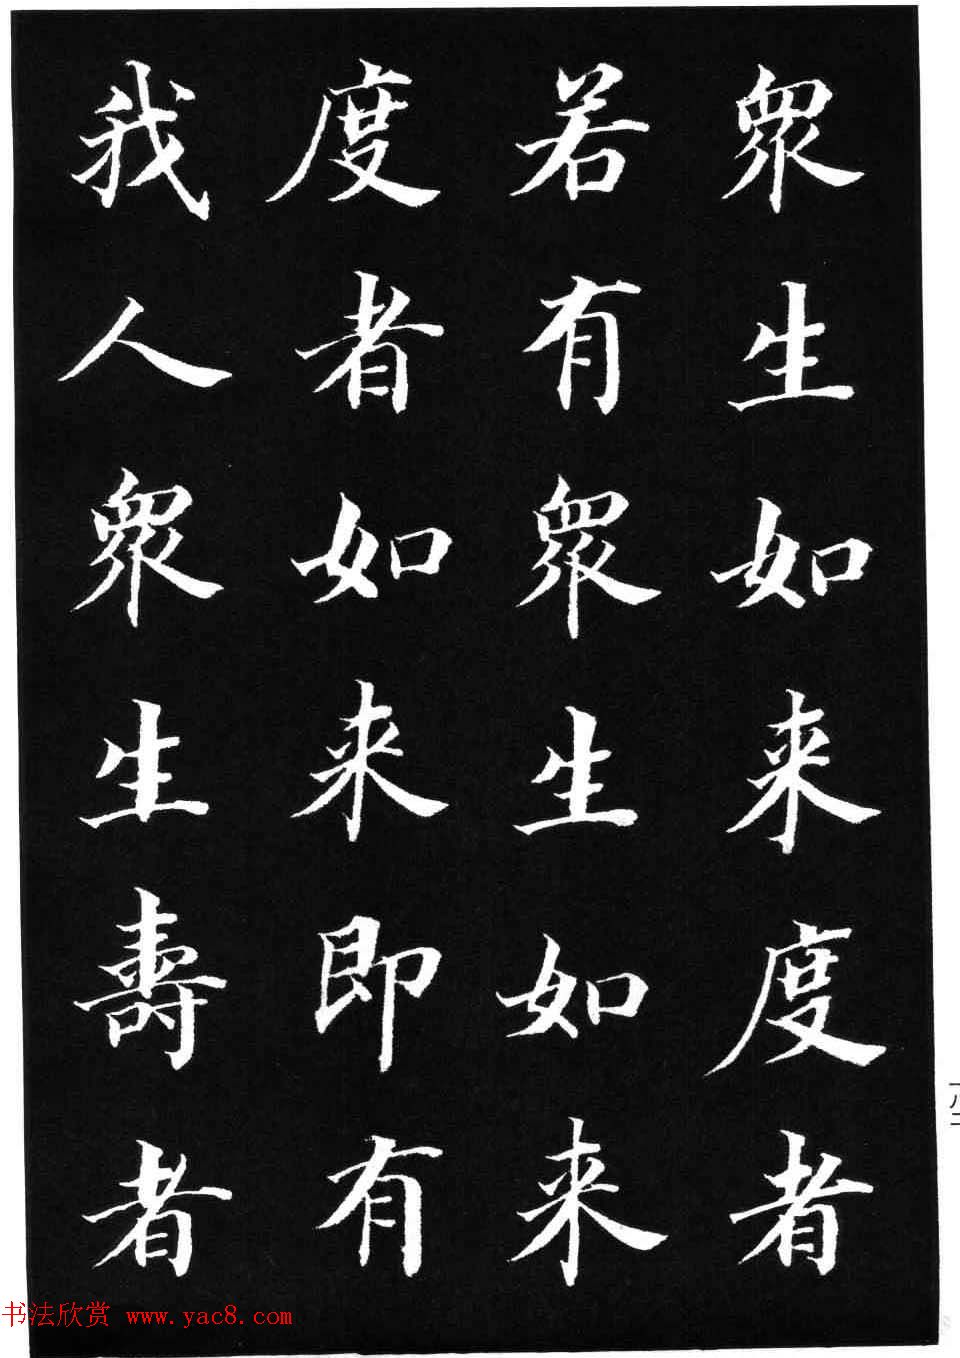 眾生如来度者
若有眾生如来
度者如来即有
我人眾生壽者
一八二
书法欣赏 www.yac8.com